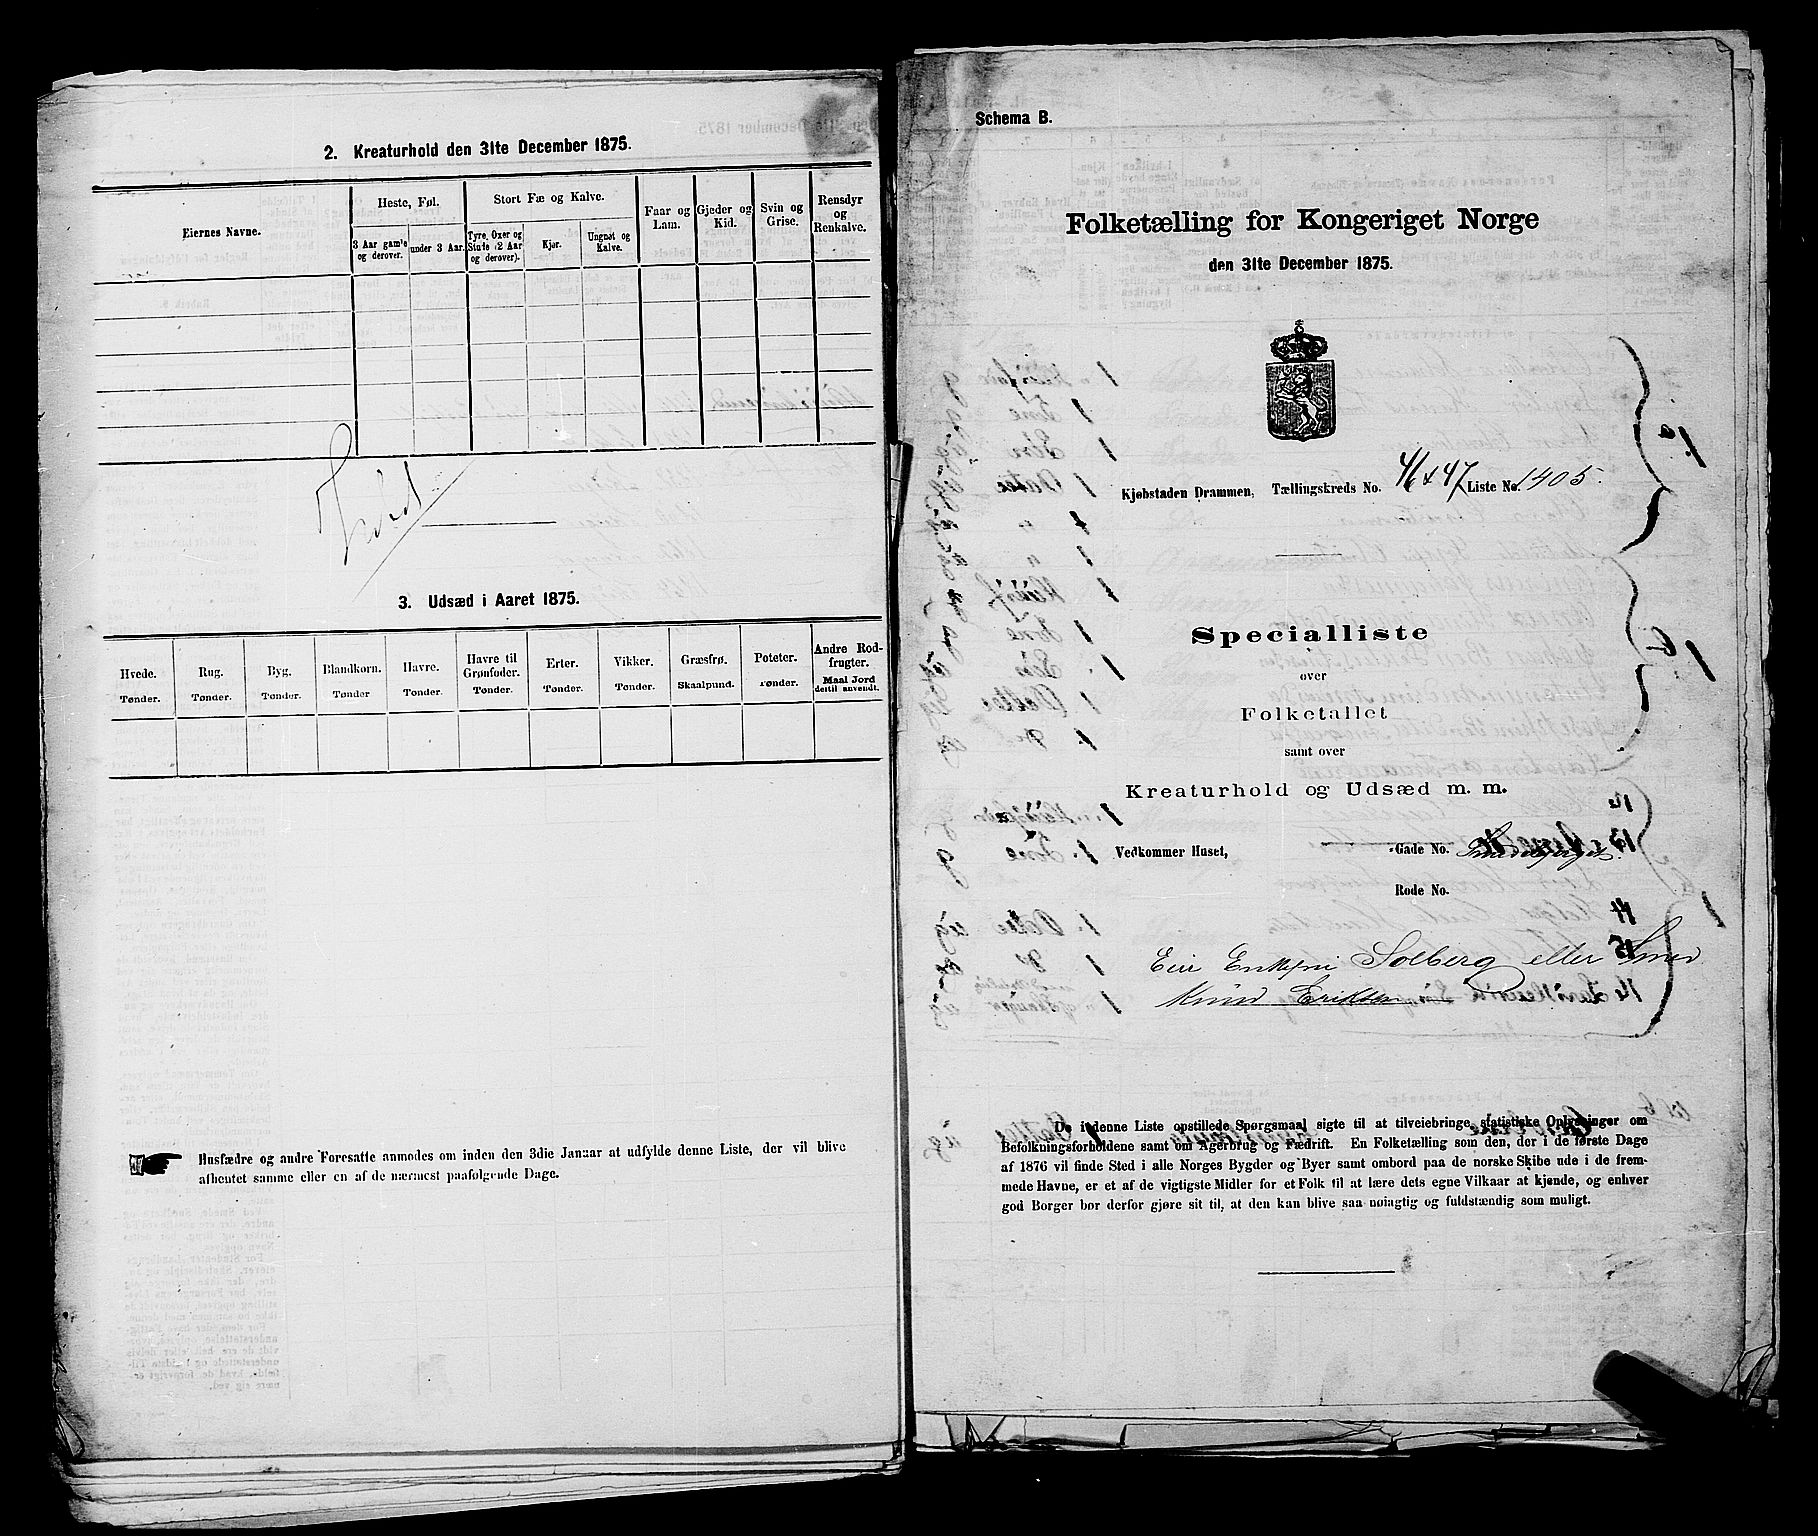 2. Kreaturhold den 31te December 1875.
Eiernes Navne.
Heste, Føl.
3 Aar gamle og derover.
under 3 Aar.
Stort Fæ og Kalve.
Tyre, Oxer og Stude (2 Aar og derover).
Kjør.
Ungnøt og Kalve.
Faar og Lam.
Gjeder og Kid.
Svin og Grise.
Rensdyr og Renkalve.
3. Udsæd i Aaret 1875.
Hvede. Tønder.
Rug. Tønder.
Byg. Tønder.
Blandkorn. Tønder
Havre. Tønder.
Havre til Grønfoder. Tønder.
Erter. Tønder.
Vikker. Tønder.
Græsfrø. Skaalpund.
Poteter. Tønder.
Andre Rodfrugter. Maal Jord dertil anvendt.
Husfædre og andre Foresatte anmodes om inden den 3die Januar at udfylde denne Liste, der vil blive
afhentet samme eller en af de nærmest paafølgende Dage.
Schema B.
Folketælling for Kongeriget Norge
den 31te December 1875.
Kjøbstaden Drammen, Tællingskreds No. 46 & 47 Liste No. 1405.
Specialliste
over
Folketallet
samt over
Kreaturhold og Udsæd m. m.
Vedkommer Huset, Gade No.
Rode No.
Solberg eller
Knud Eriksen
De i denne Liste opstillede Spørgsmaal sigte til at tilveiebringe statistiske Oplysninger om
Befolkningsforholdene samt om Agerbrug og Fædrift. En Folketælling som den, der i de første Dage
af 1876 vil finde Sted i alle Norges Bygder og Byer samt ombord paa de norske Skibe ude i de frem-
mede Havne, er et af de vigtigste Midler for et Folk til at lære dets egne Vilkaar at kjende, og enhver
god Borger bør derfor gjøre sit til, at den kan blive saa nøiagtig og fuldstændig som muligt.